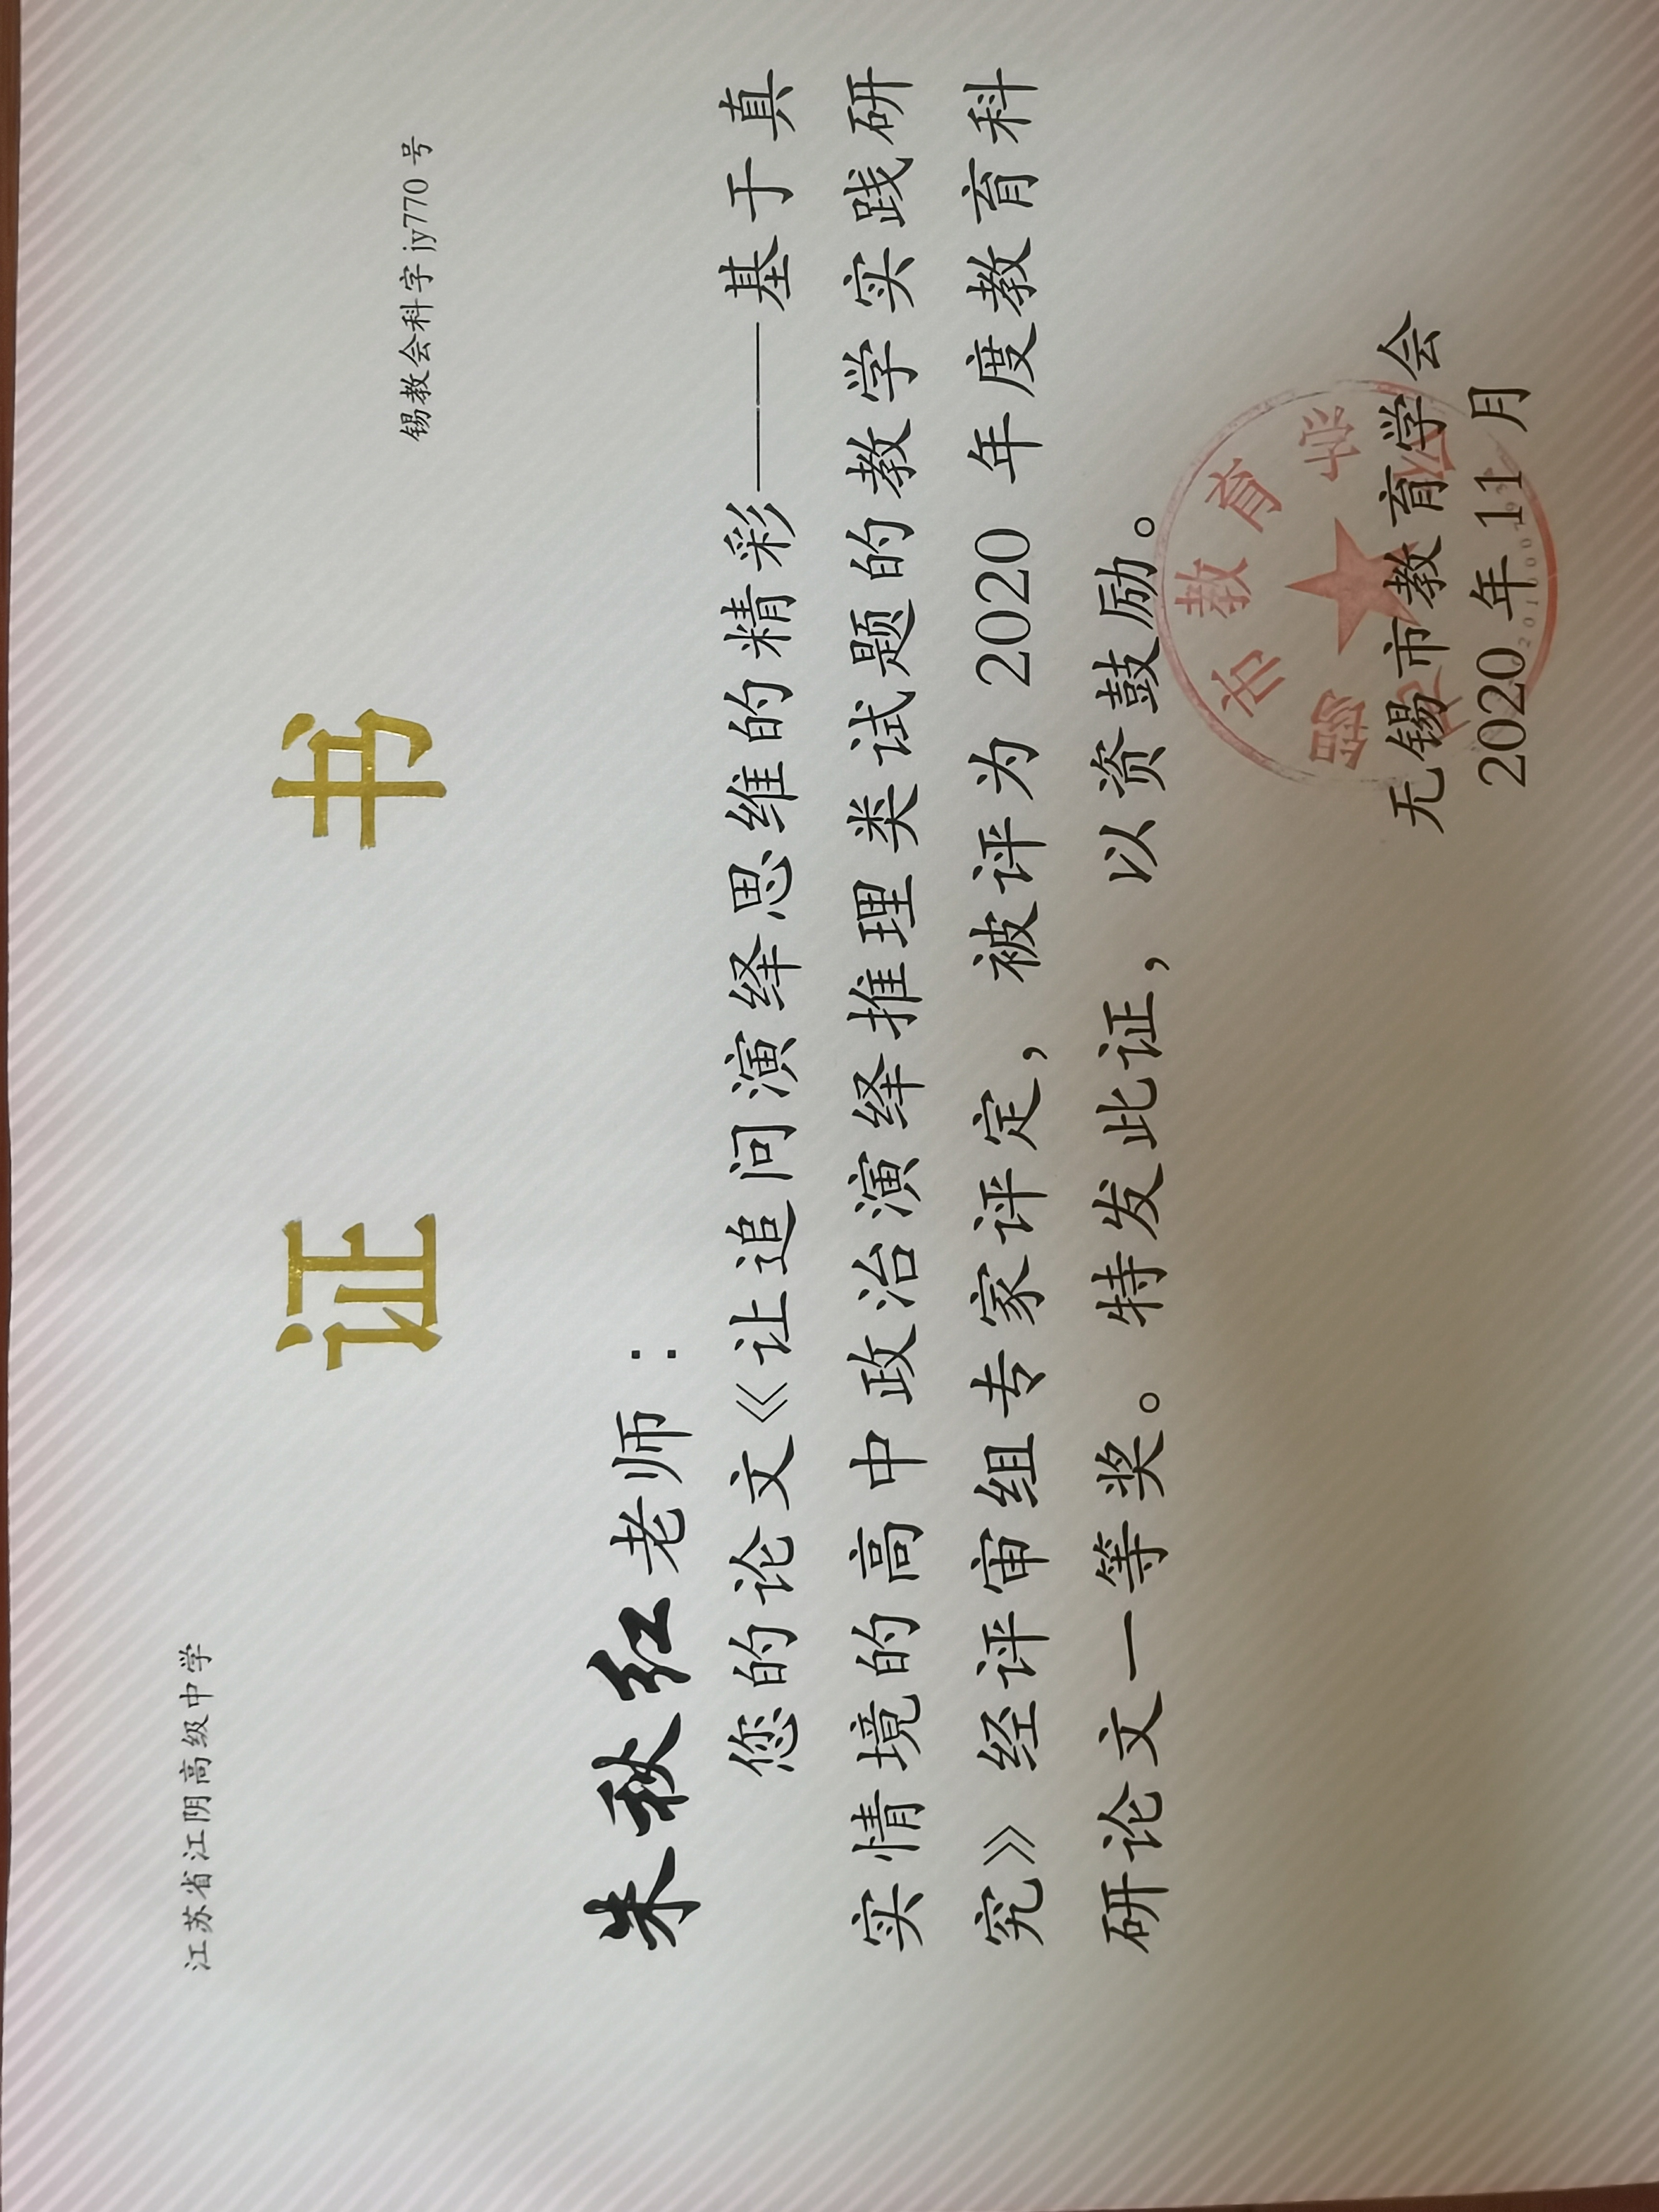 江苏省江阴高级中学
证 书
锡教会科字 jy770 号
朱秋红老师：
您的论文《让追问演绎思维的精彩——基于真
实情境的高中政治演绎推理类试题的教学实践研
究》经评审组专家评定，被评为 2020 年度教育科
研论文一等奖。特发此证，以资鼓励。
无锡市教育学会
2020 年 11 月